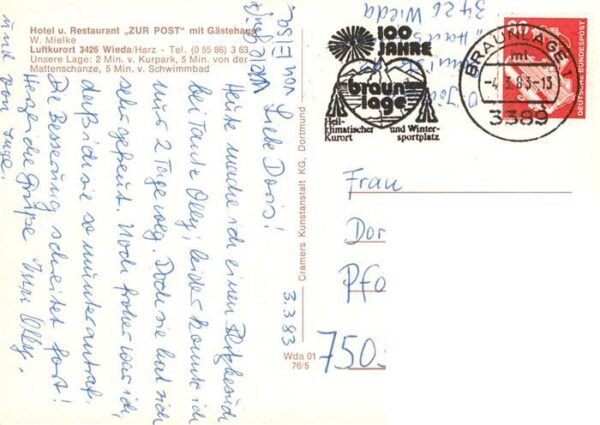 Hotel u. Restaurant „ZUR POST" mit Gästehaus
W. Mielke
Luftkurort 3426 Wieda/Harz - Tel. (0 55 86) 3 63
Unsere Lage: 2 Min. v. Kurpark, 5 Min. von der
Mattenschanze, 5 Min. v. Schwimmbad
3.3.83
Liebe Doris!
Heute mache ich einen Blitzbesuch
bei Tante Olly, leider konnte ich
nur 2 Tage weg. Doch sie hat sich
sehr gefreut. Noch froher war ich,
daß ich sie so munter antraf.
Die Besserung schreitet fort!
Herzliche Grüße
und von
Olly.
Cramers Kunstanstalt KG, Dortmund
Wda 01
76/5
3426 Wieda
100
JAHRE
braun
lage
Heil-
klimatischer
Kurort
und Winter-
sportplatz
BRAUNLAGE 1
mt
-4.3.83-13
3389
DEUTSCHE BUNDESPOST
Frau
Dor
Pfo
750